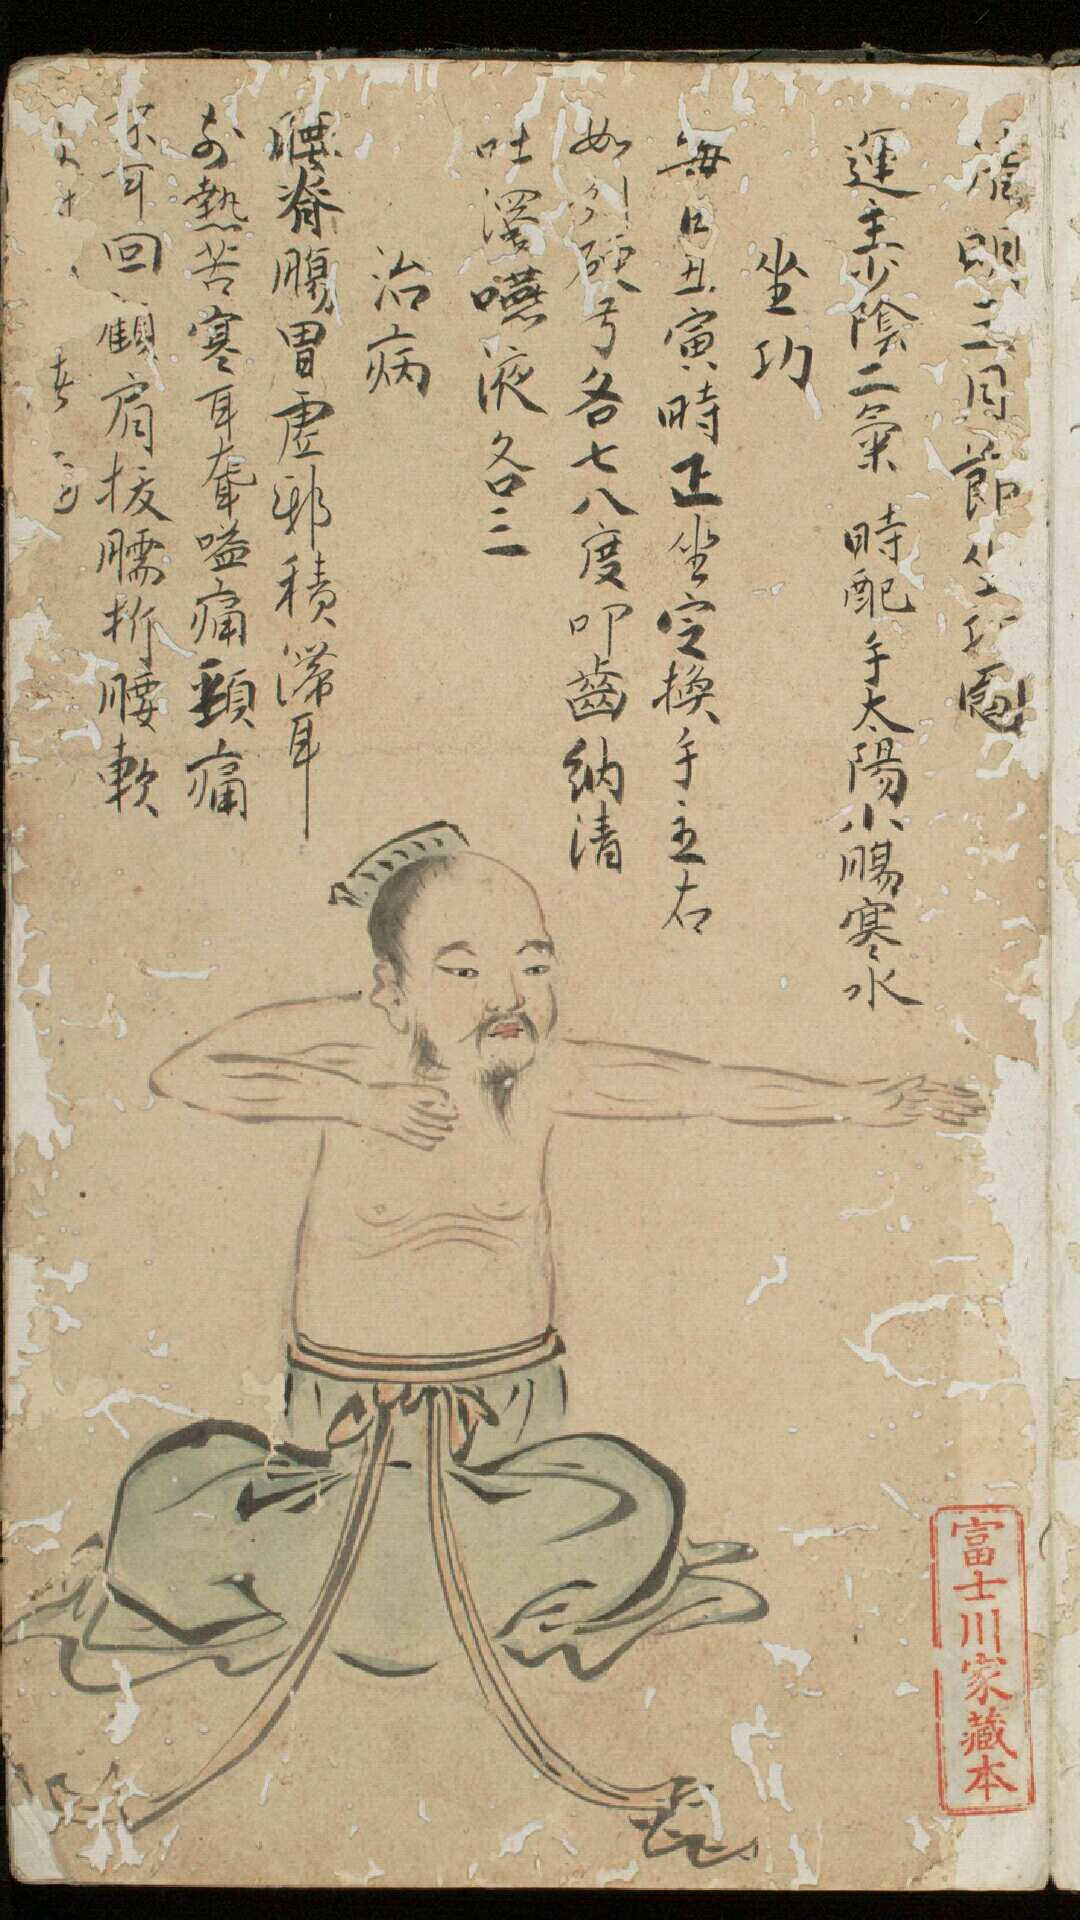 清明三月節坐功圖
運主少陰二氣 時配手太陽小腸寒水
坐功
每日丑寅時正坐定換手左右
如引硬弓各七八度叩齒納清
吐濁嚥液各三
治病
腰脊腸胃虛邪積滯耳
前熱苦寒耳聾嗌痛頸痛
不可回顧肩拔臑折腰軟
富士川家藏本